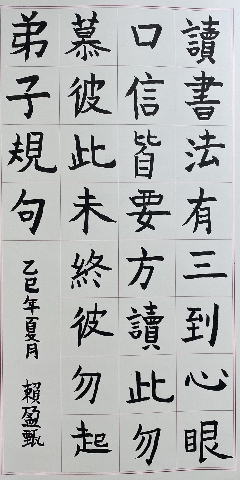 讀書法有三到心眼
口信皆要方讀此勿
慕彼此未終彼勿起
弟子規句
乙巳年夏月
賴盈甄